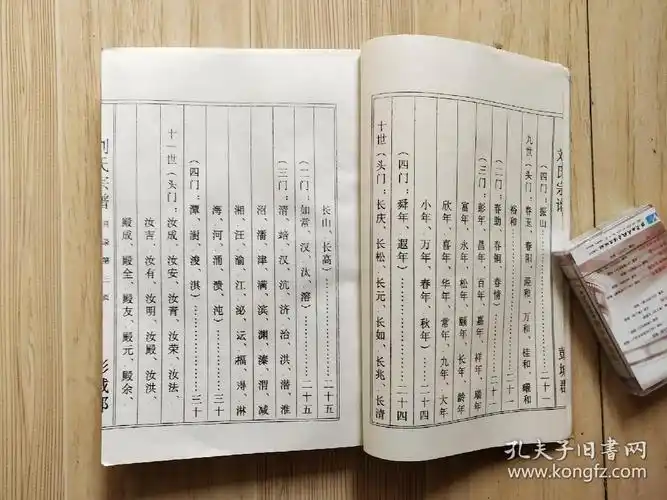 刘氏宗谱
彭城郡
（四门：振山………………二十
九世（头门：春玉、春阳、遥和、万和、桂和、曜和
裕和………………二十一
（二门：春勤、春铜、春情）………………二十
（三门：彭年、昌年、百年、嘉年、祥年、瑞年
富年、永年、松年、颐年、长年、龄年
欣年、喜年、华年、常年、九年、大年
小年、万年、春年、秋年）………………二十四
（四门：舜年、遐年）………………二十四
十世（头门：长庆、长松、长元、长如、长兆、长清
长山、长高）………………二十五
（二门：如常、汉、汰、溶）………………二十五
（三门：清、培、汉、沆、济、治、洪、潜、淮
沼、潘、津、满、滨、渊、溱、渭、减
湘、汪、渝、江、泌、沄、福、浔、淋
海、河、涌、赞、沌）………………三十
（四门：潭、澍、浚、淇）………………三十
十一世（头门：汝成、汝安、汝青、汝荣、汝法、
汝吉、汝有、汝明、汝殿、汝洪、
殿成、殿全、殿友、殿元、殿余、
刘氏宗谱
目录第二页
彭城郡
孔夫子旧书网
www.kongfz.com